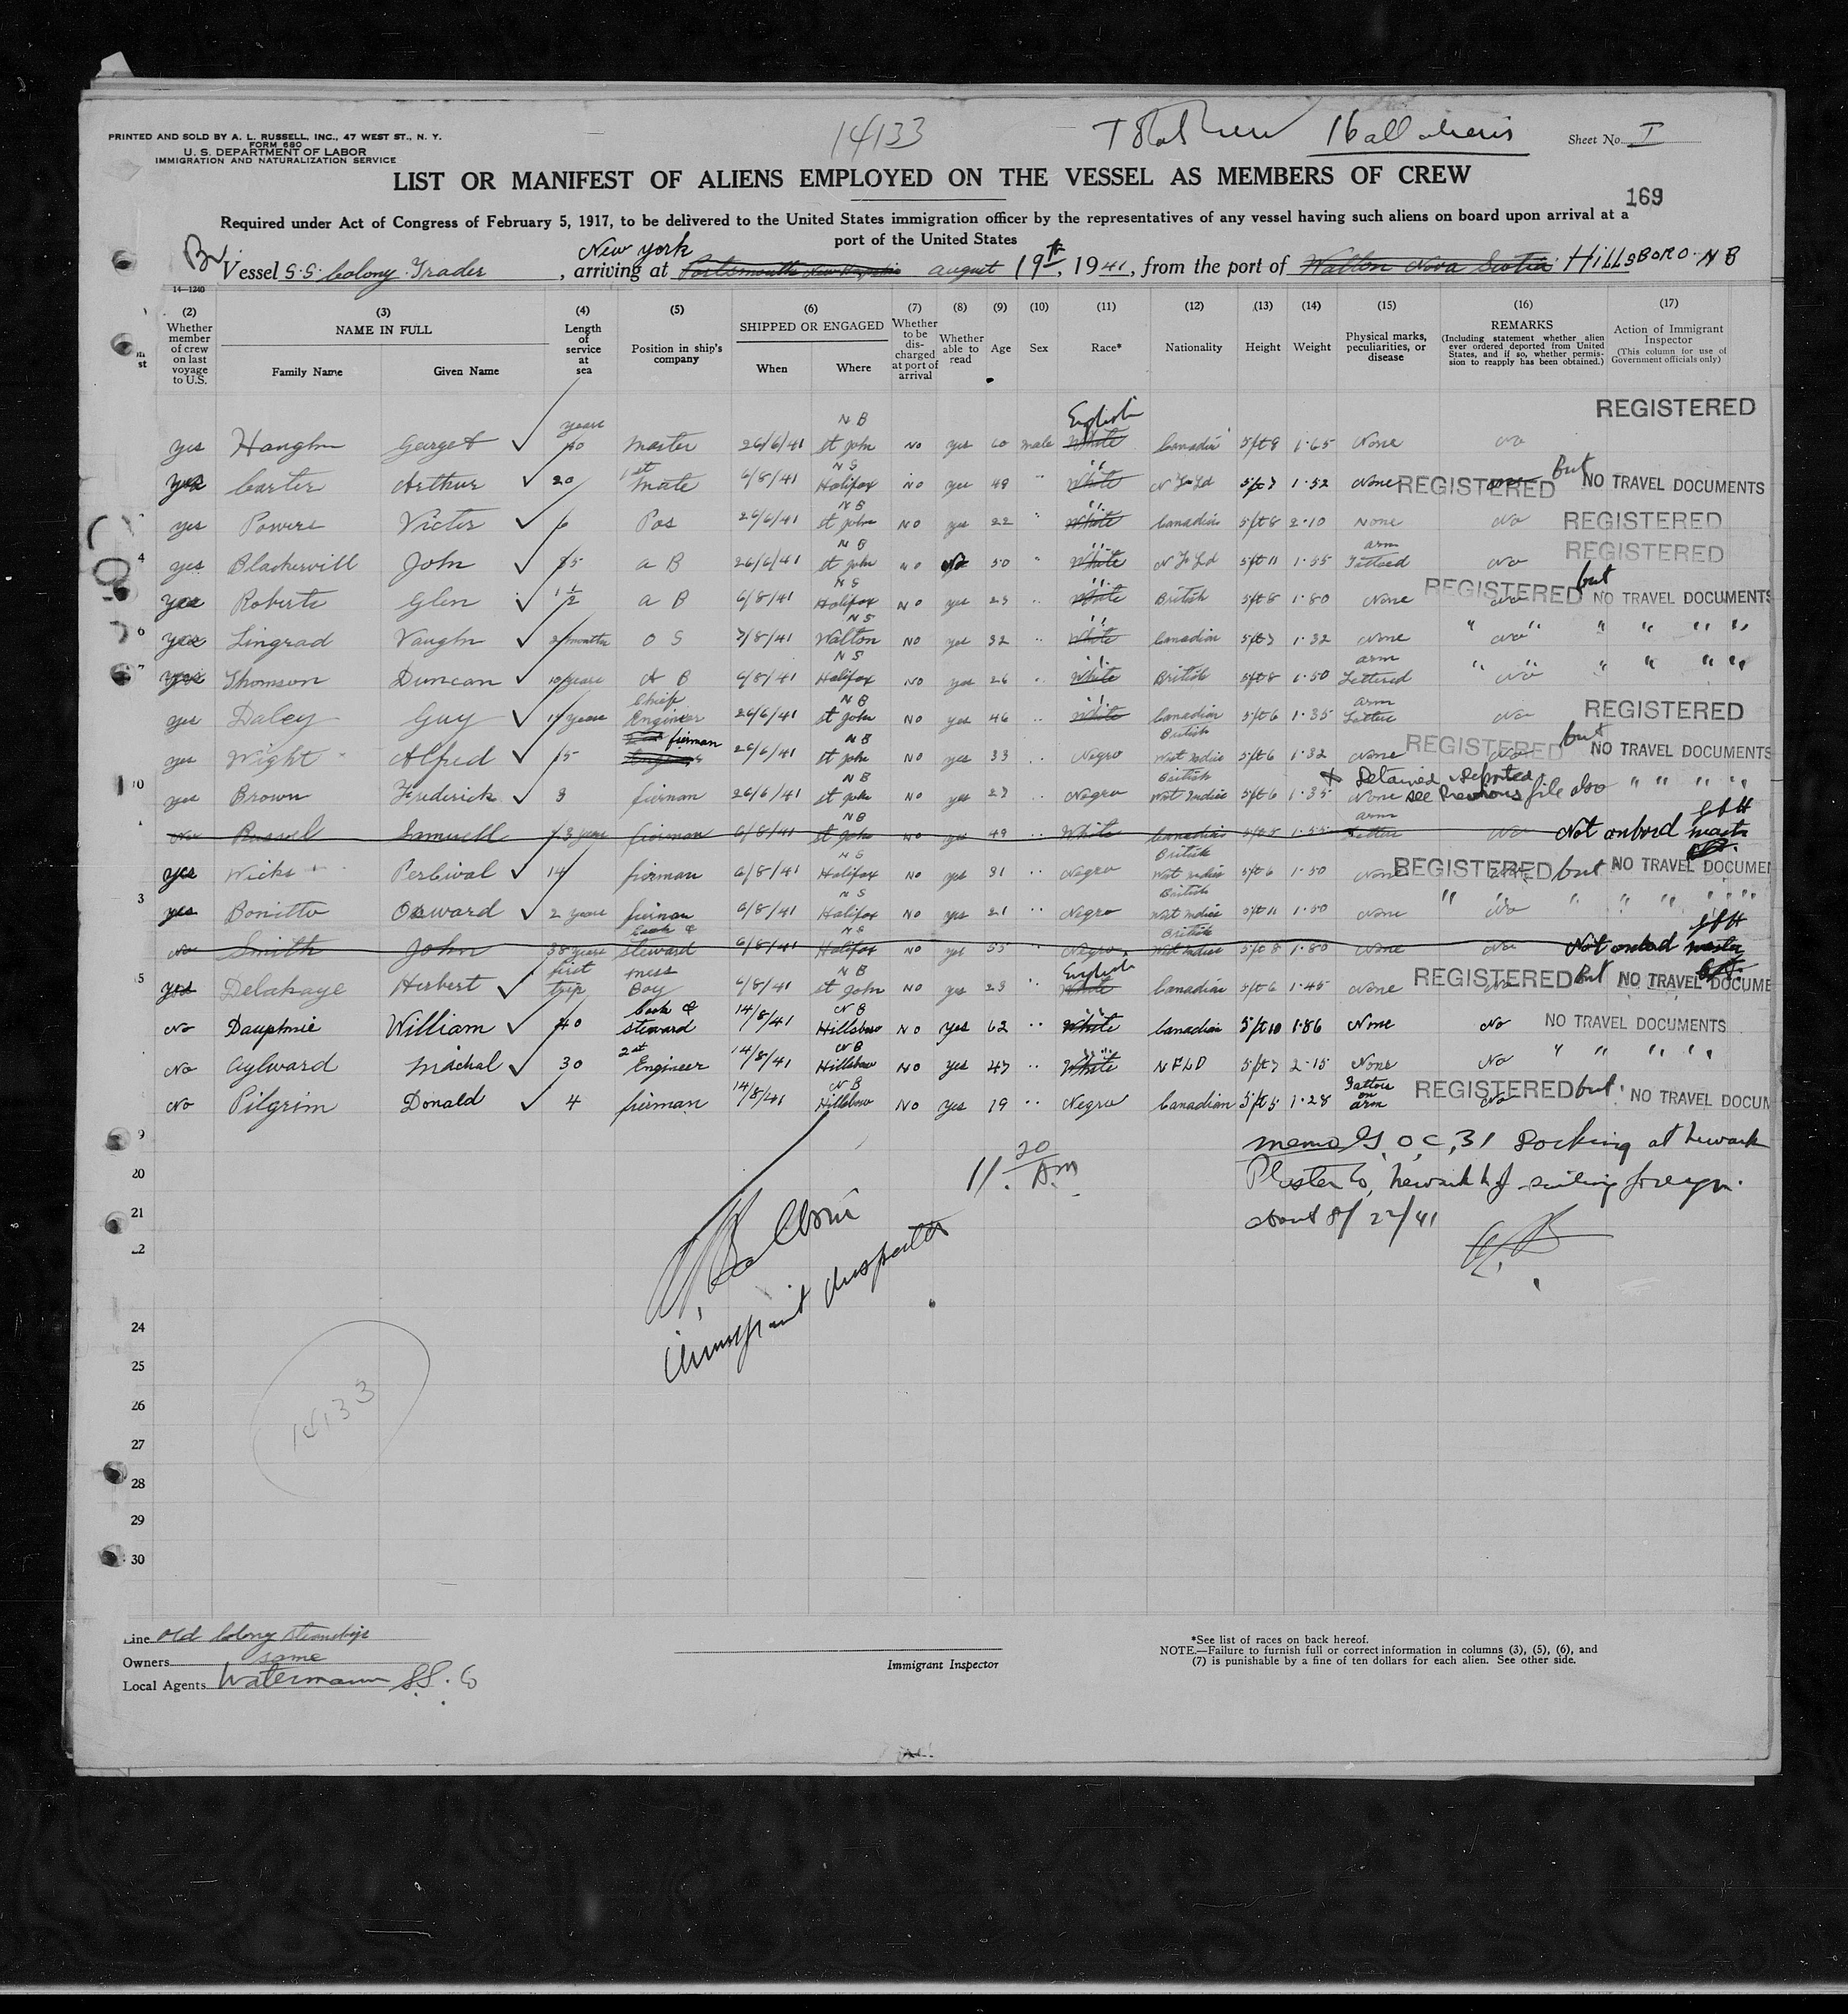 PRINTED AND SOLD BY A. L. RUSSELL, INC., 47 WEST ST., N. Y.
FORM 680
U. S. DEPARTMENT OF LABOR
IMMIGRATION AND NATURALIZATION SERVICE
14133
16 all aliens
Sheet No. I
LIST OR MANIFEST OF ALIENS EMPLOYED ON THE VESSEL AS MEMBERS OF CREW
169
Required under Act of Congress of February 5, 1917, to be delivered to the United States immigration officer by the representatives of any vessel having such aliens on board upon arrival at a
port of the United States
New York
Br Vessel S.S. Colony Trader, arriving at august 19th, 1941, from the port of Walton Nova Scotia HILLSBORO. NB
14-1240
(2) (3) (4) (5) (6) (7) (8) (9) (10) (11) (12) (13) (14) (15) (16) (17)
Whether member of crew on last voyage to U.S. NAME IN FULL Family Name Given Name Length of service at sea Position in ship's company SHIPPED OR ENGAGED When Where Whether to be discharged at port of arrival Whether able to read Age Sex Race* Nationality Height Weight Physical marks, peculiarities, or disease REMARKS (Including statement whether alien ever ordered deported from United States, and if so, whether permission to reapply has been obtained.) Action of Immigrant Inspector (This column for use of Government officials only)
yes Haughn George A years 40 master 26/6/41 St John N B No yes 60 male White English Canadian 5ft8 1.65 None No REGISTERED
yes Carter Arthur 20 1st mate 6/8/41 Halifax N S No yes 49 " White " N F Ld 5ft7 1.52 None REGISTERED But NO TRAVEL DOCUMENTS
yes Powers Victor 6 Bos 26/6/41 St John N B No yes 22 " White " Canadian 5ft8 2.10 None No REGISTERED
4 yes John A B 26/6/41 St John N B No No 50 " White " N F Ld 5ft11 1.55 arm Tattooed No REGISTERED
yes Roberts Glen 1 1/2 A B 6/8/41 Halifax N S No yes 23 " White " British 5ft8 1.80 None No REGISTERED but NO TRAVEL DOCUMENTS
6 yes Lingrad Vaughn 2 months O S 7/8/41 Walton N S No yes 32 " White " Canadian 5ft7 1.32 None No " " " " "
7 yes Thomson Duncan 10 years A B 6/8/41 Halifax N S No yes 26 " White " British 5ft8 1.50 arm Lettered No " " " " "
yes Daley Guy 17 years Chief Engineer 26/6/41 St John N B No yes 46 " White " Canadian 5ft6 1.35 arm No REGISTERED
yes Wight Alfred 15 fierman 26/6/41 St John N B No yes 33 " Negro British West Indies 5ft6 1.32 None No REGISTERED but NO TRAVEL DOCUMENTS
10 yes Brown Frederick 3 fierman 26/6/41 St John N B No yes 27 " Negro British West Indies 5ft6 1.35 None Detained & deported see previous file also " " " "
No Russel Samuell 13 years fierman 6/8/41 St John N B No yes 49 " White Canadian 5ft5 1.55 arm No Not onbord master
yes Wicks Percival 14 fierman 6/8/41 Halifax N S No yes 31 " Negro British West Indies 5ft6 1.50 None REGISTERED but NO TRAVEL DOCUMEN
3 yes Bonitto Osward 2 years fierman 6/8/41 Halifax N S No yes 21 " Negro British West Indies 5ft11 1.50 None No " " " " "
No Smith John 38 years Cook & Steward 6/8/41 Halifax N S No yes 55 " Negro British West Indies 5ft8 1.80 None No Not onbord master
5 yes Delahaye Herbert first trip mess Boy 6/8/41 St John N B No yes 23 " White English Canadian 5ft6 1.45 None No REGISTERED But NO TRAVEL DOCUME
No Dauphnie William 40 Cook & Steward 14/8/41 Hillsboro N B No Yes 62 " White " Canadian 5ft10 1.86 None No NO TRAVEL DOCUMENTS
No Aylward Michal 30 2st Engineer 14/8/41 Hillsboro N B No Yes 47 " White " N F L D 5ft7 2.15 None No " " " "
No Pilgrim Donald 4 fierman 14/8/41 Hillsboro N B No Yes 19 " Negro Canadian 5ft5 1.28 Tattoo on arm No REGISTERED but NO TRAVEL DOCUM
9
11 20 Am
memo Docking at Newark
20
Plaster Co, Newark N J sailing foreign
21
about 8/22/41
22
Immigrant Inspector
24
25
14133
26
27
28
29
30
Line Old Colony Steamships
Owners same
Local Agents Watermann S.S. Co
Immigrant Inspector
*See list of races on back hereof.
NOTE.—Failure to furnish full or correct information in columns (3), (5), (6), and
(7) is punishable by a fine of ten dollars for each alien. See other side.